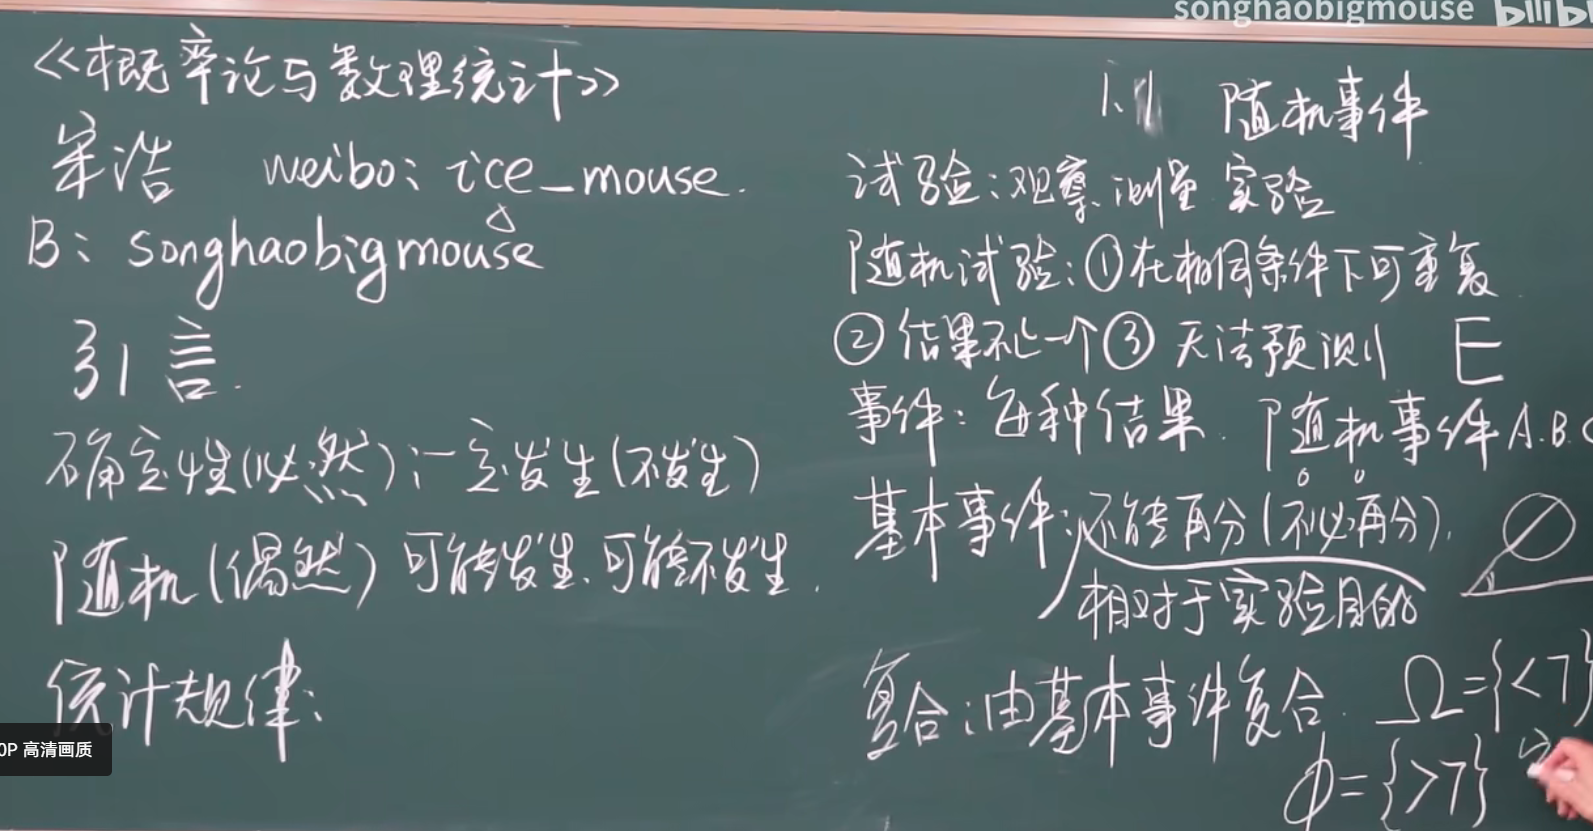 songhaobigmouse bilib
《概率论与数理统计》
宋浩 weibo: ice_mouse.
B: songhaobigmouse
引言.
确定性(必然):一定发生(不发生)
随机(偶然) 可能发生、可能不发生.
统计规律:
0P 高清画质
1.1 随机事件
试验:观察、测量、实验
随机试验:①在相同条件下可重复
②结果不止一个③无法预测 E
事件:每种结果. 随机事件 A.B.C
基本事件:不能再分(不必再分).
相对于实验目的
复合:由基本事件复合. Ω={<7}
Φ={>7}